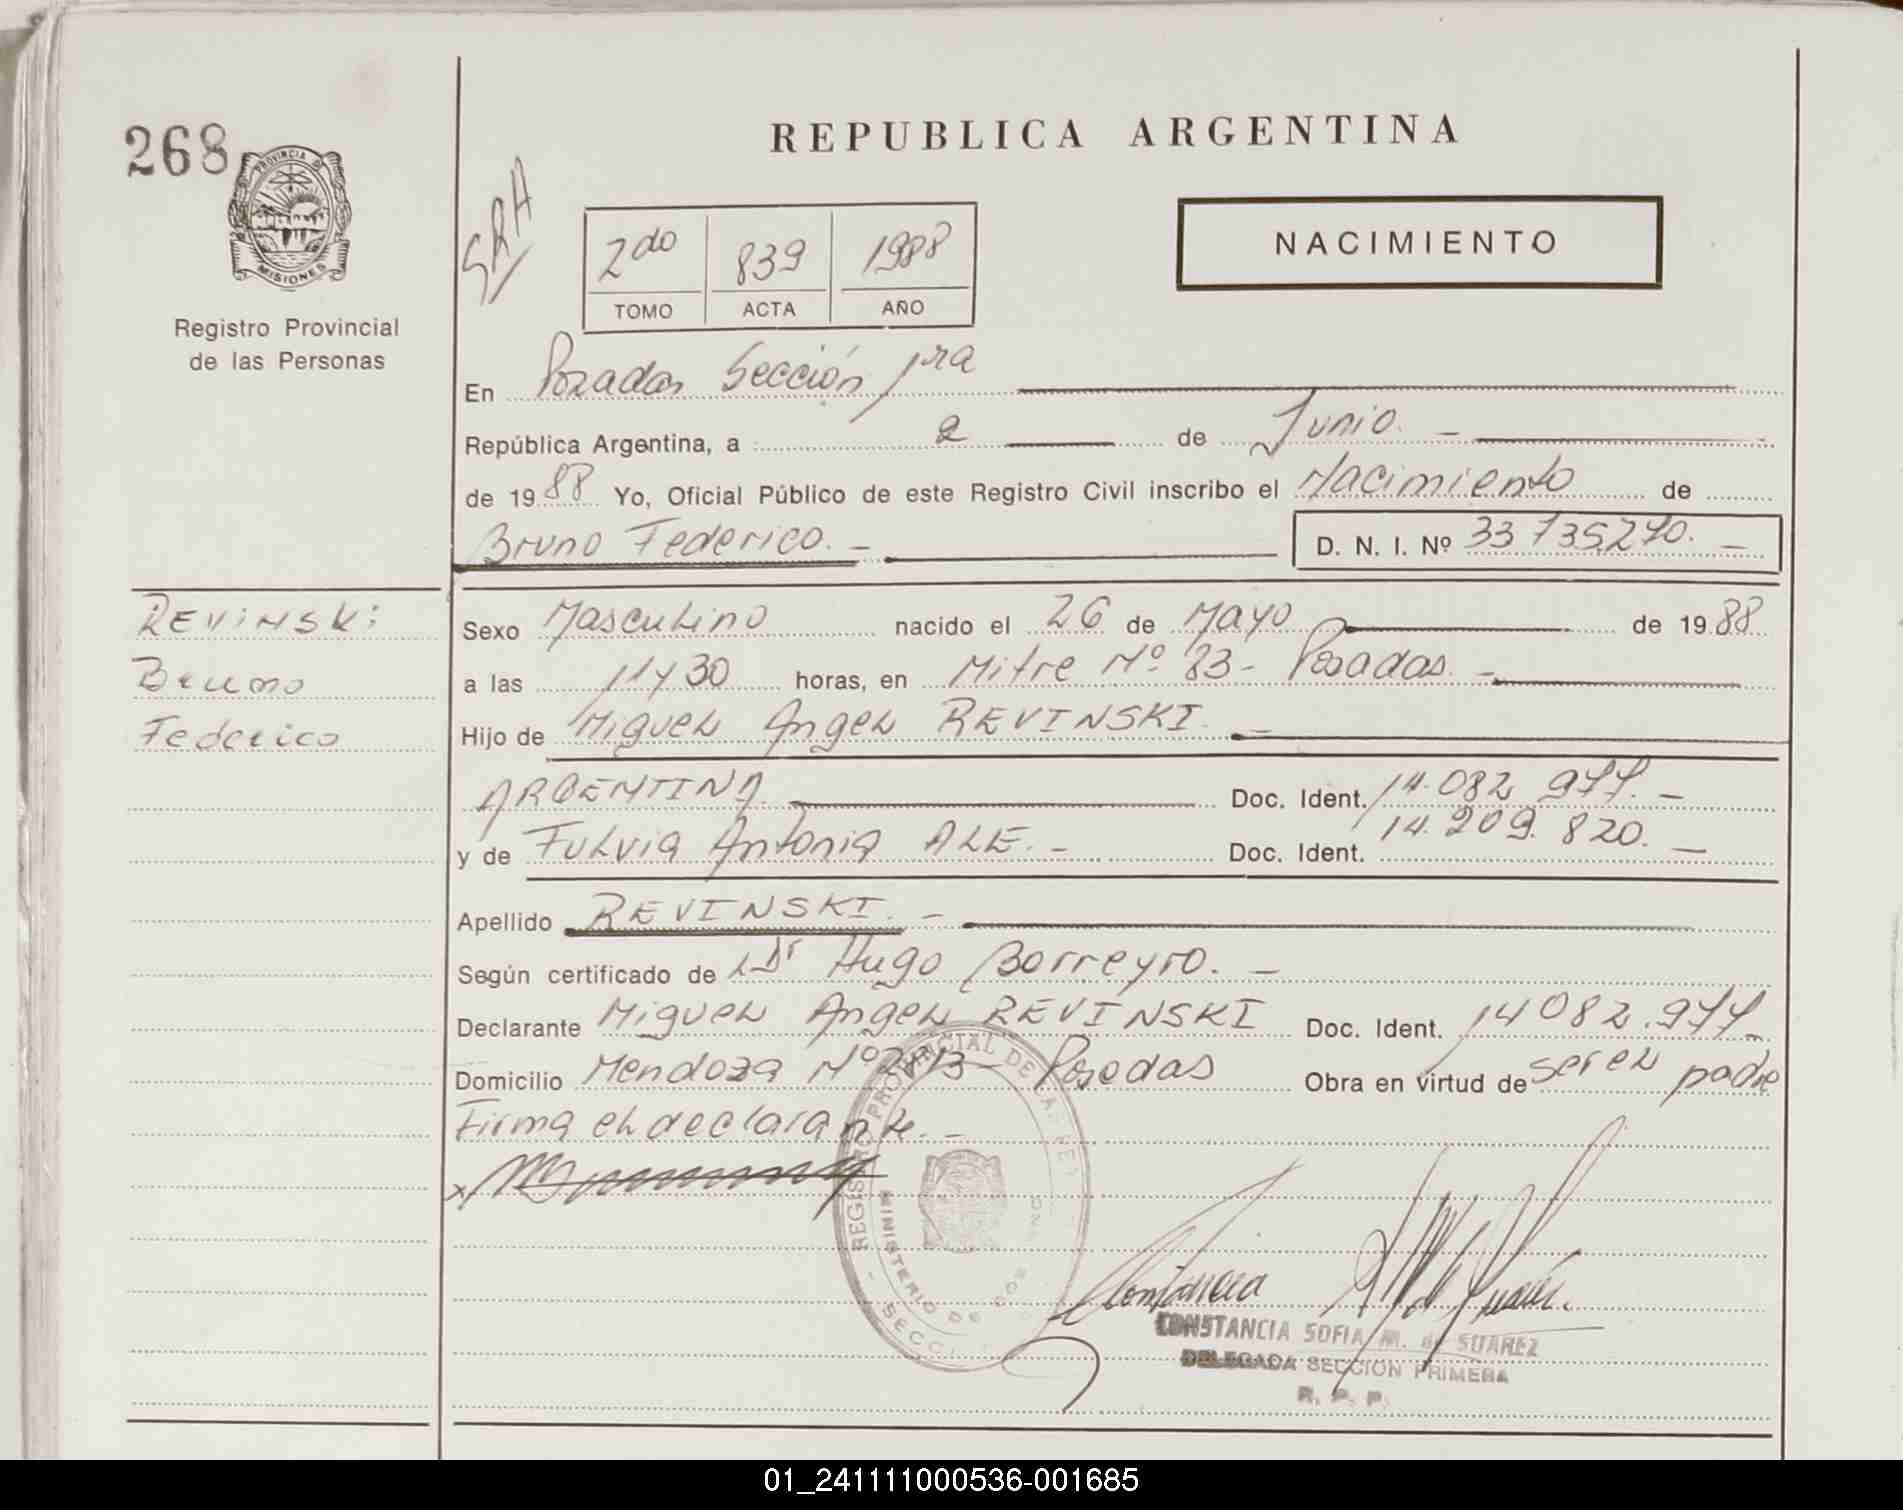 268
PROVINCIA DE
MISIONES
Registro Provincial
de las Personas
REPUBLICA ARGENTINA
SRA
NACIMIENTO
2do 839 1988
TOMO ACTA AÑO
En Posadas Sección 1ra
República Argentina, a 2 de Junio.
de 1988 Yo, Oficial Público de este Registro Civil inscribo el Nacimiento de
Bruno Federico. D. N. I. Nº 33 735.270.
Revinski
Bruno
Federico
Sexo Masculino nacido el 26 de Mayo de 1988
a las 11 y 30 horas, en Mitre Nº 83 - Posadas.
Hijo de Miguel Angel REVINSKI.
ARGENTINA Doc. Ident. 14.082 977.
y de Fulvia Antonia ALE. Doc. Ident. 14.209.820.
Apellido REVINSKI.
Según certificado de Dr Hugo Borreyro.
Declarante Miguel Angel REVINSKI Doc. Ident. 14 082.977
Domicilio Mendoza Nº Posadas Obra en virtud de ser el padre
Firma el declarante.
REGISTRO PROVINCIAL DE LAS
MINISTERIO DE GOB
SECCI
x
Constancia de Suárez
CONSTANCIA SOFIA M. de SUAREZ
DELEGADA SECCION PRIMERA
R. P. P.
01_241111000536-001685